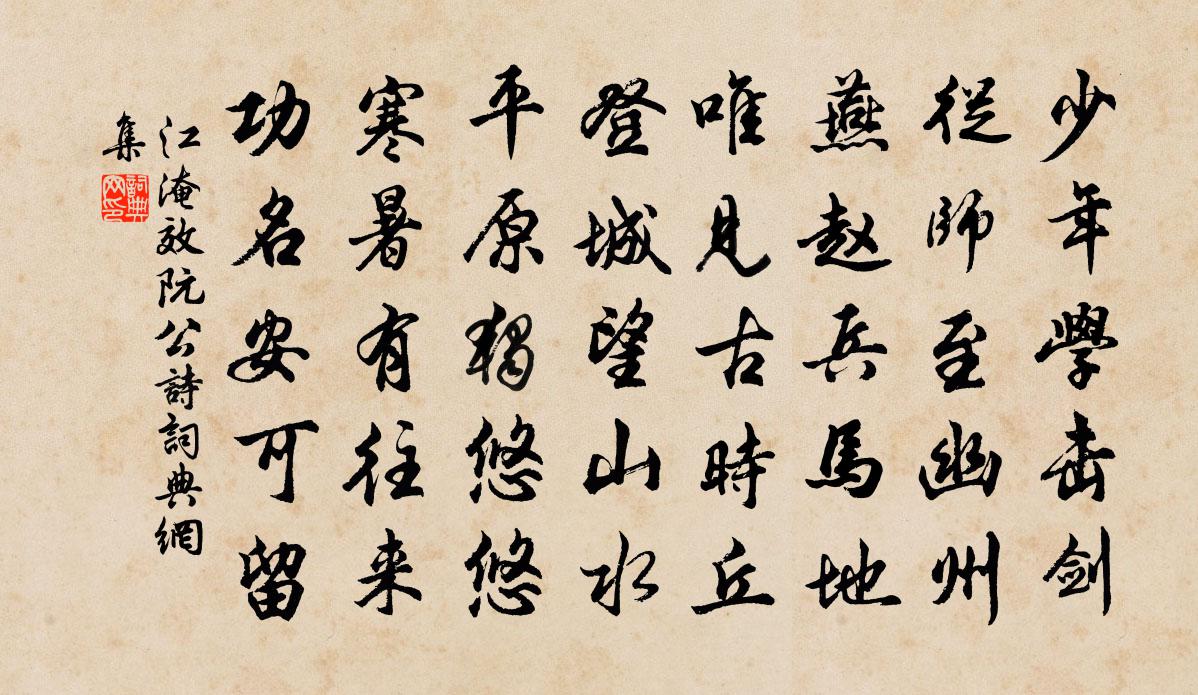 少年學击剑
從師至幽州
燕赵兵馬地
唯見古時丘
登城望山水
平原獨悠悠
寒暑有往来
功名安可留
江淹效阮公詩詞典網
集
詞典
网印